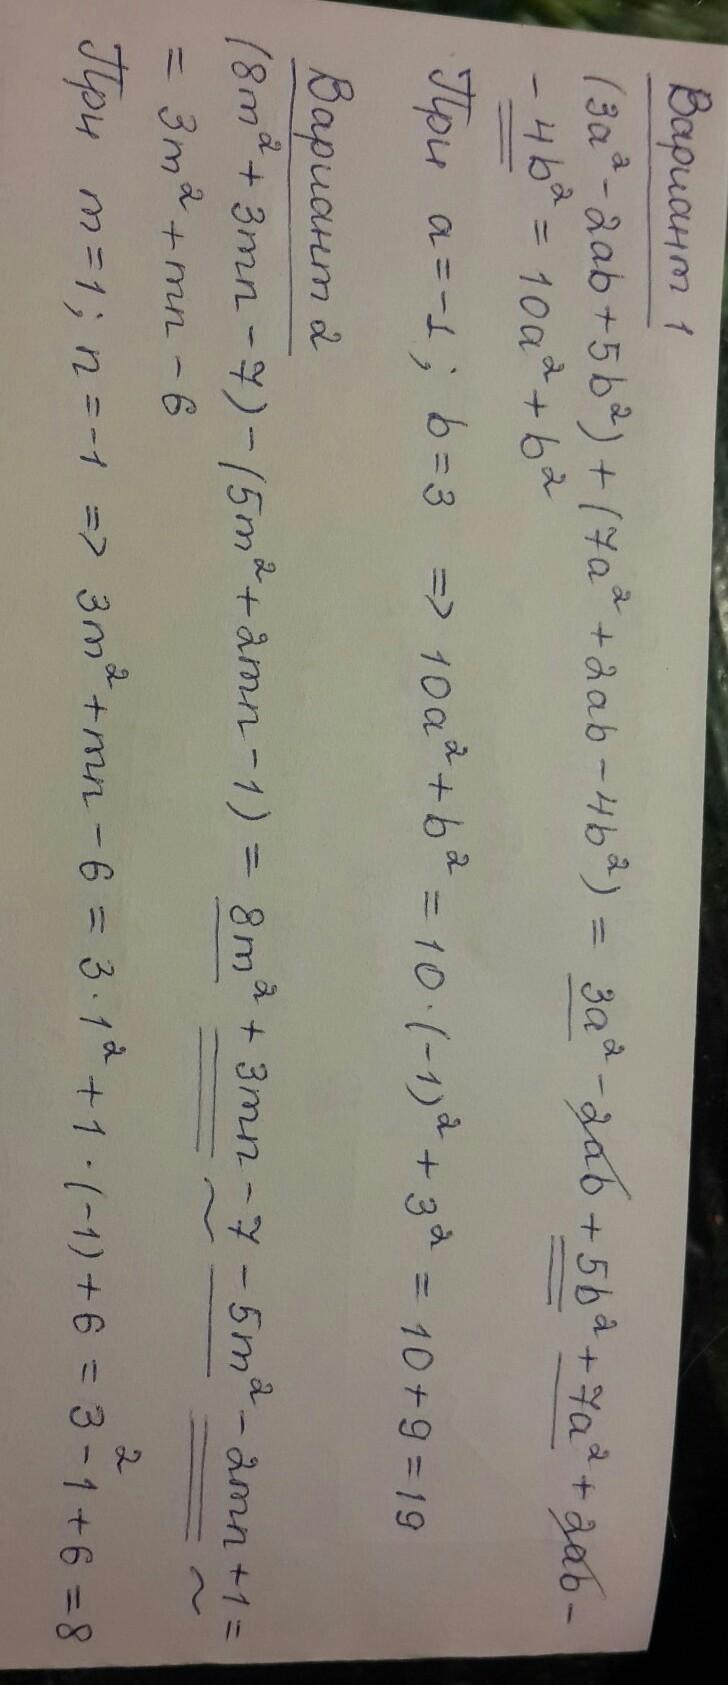 Вариант 1
(3a² - 2ab + 5b²) + (7a² + 2ab - 4b²) = 3a² - 2ab + 5b² + 7a² + 2ab -
- 4b² = 10a² + b²
При a = -1; b = 3 => 10a² + b² = 10·(-1)² + 3² = 10 + 9 = 19
Вариант 2
(8m² + 3mn - 7) - (5m² + 2mn - 1) = 8m² + 3mn - 7 - 5m² - 2mn + 1 =
= 3m² + mn - 6
При m = 1; n = -1 => 3m² + mn - 6 = 3·1² + 1·(-1) + 6 = 3 - 1 + 6 = 8
2